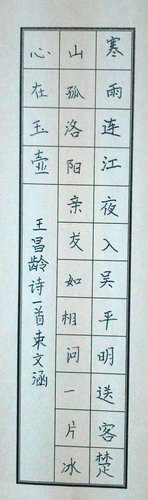 寒雨连江夜入吴平明送客楚
山孤洛阳亲友如相问一片冰
心在玉壶
王昌龄诗一首束文涵